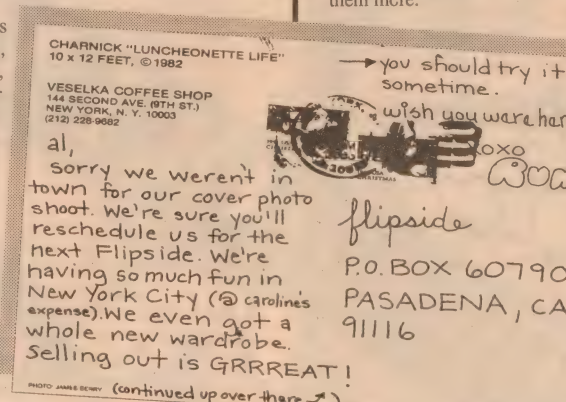 them more.
CHARNICK "LUNCHEONETTE LIFE"
10 x 12 FEET, © 1982
VESELKA COFFEE SHOP
144 SECOND AVE. (9TH ST.)
NEW YORK, N. Y. 10003
(212) 228-9682
al,
Sorry we weren't in
town for our cover photo
shoot. We're sure you'll
reschedule us for the
next Flipside. We're
having so much fun in
New York City (@ caroline's
expense). We even got a
whole new wardrobe.
Selling out is GRRREAT!
(continued up over there ↗)
→ you should try it
sometime.
wish you were her
xoxo
flipside
P.O. BOX 60790
PASADENA, CA
91116